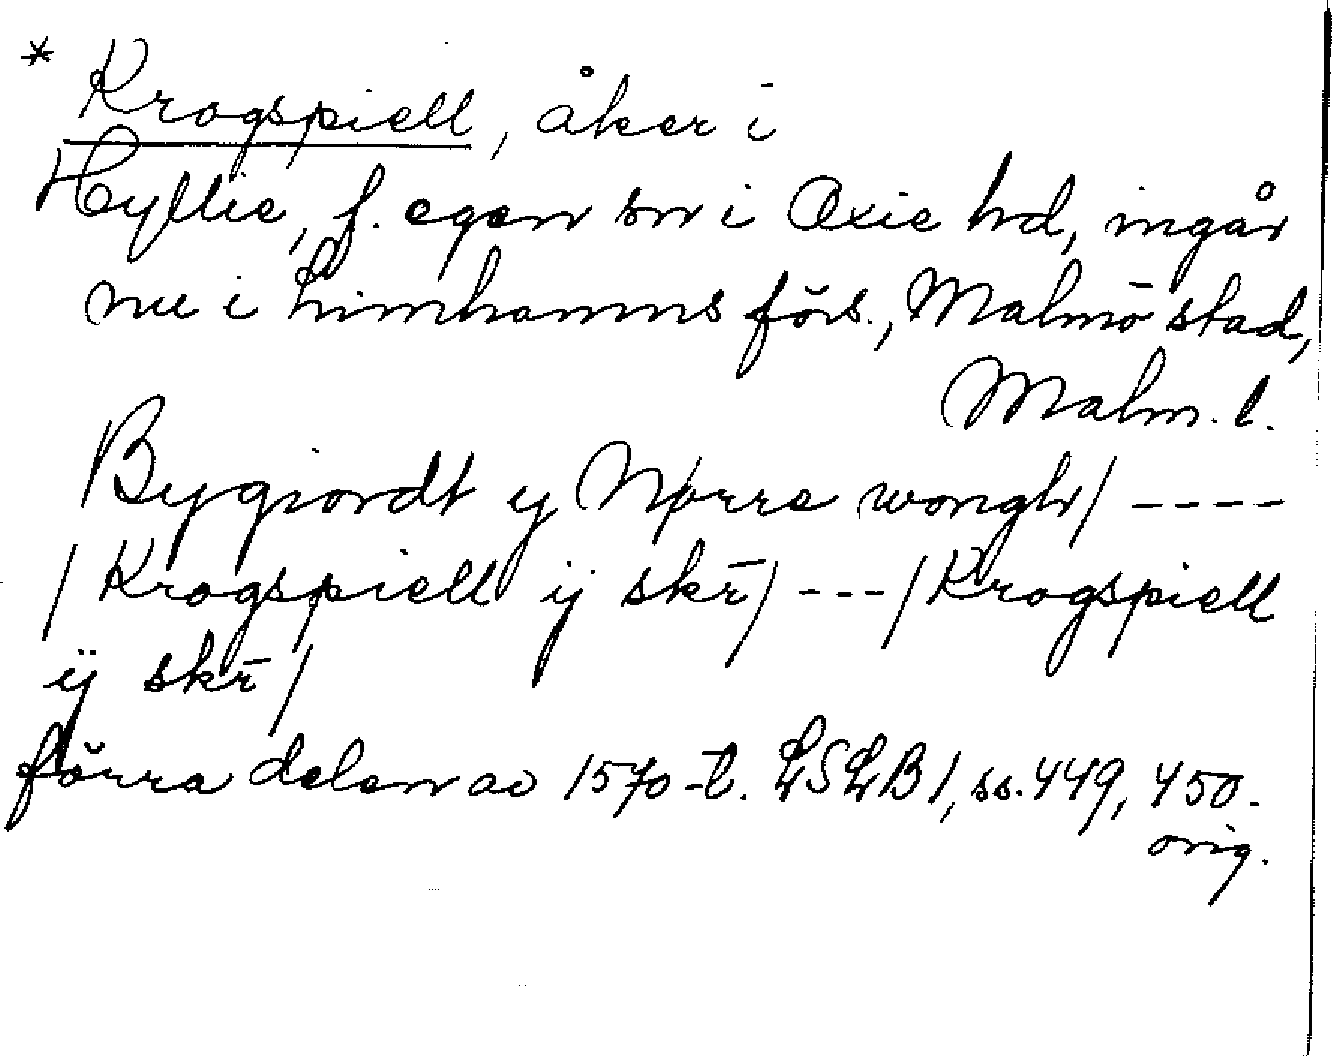 * Krogspiell, åker i
Hyllie, f. egen sn i Oxie hd, ingår
nu i Limhamns förs., Malmö stad,
Malm. l.
Bygiordt y Nørre wongh/ ----
/ Krogspiell ij skr̄/ ---/ Krogspiell
ÿ skr̄/
förra delen av 1570-t. LSLB 1, ss. 449, 450.
orig.